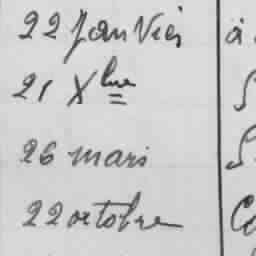 22 Janvier à
21 Xbre
26 mars
22 octobre